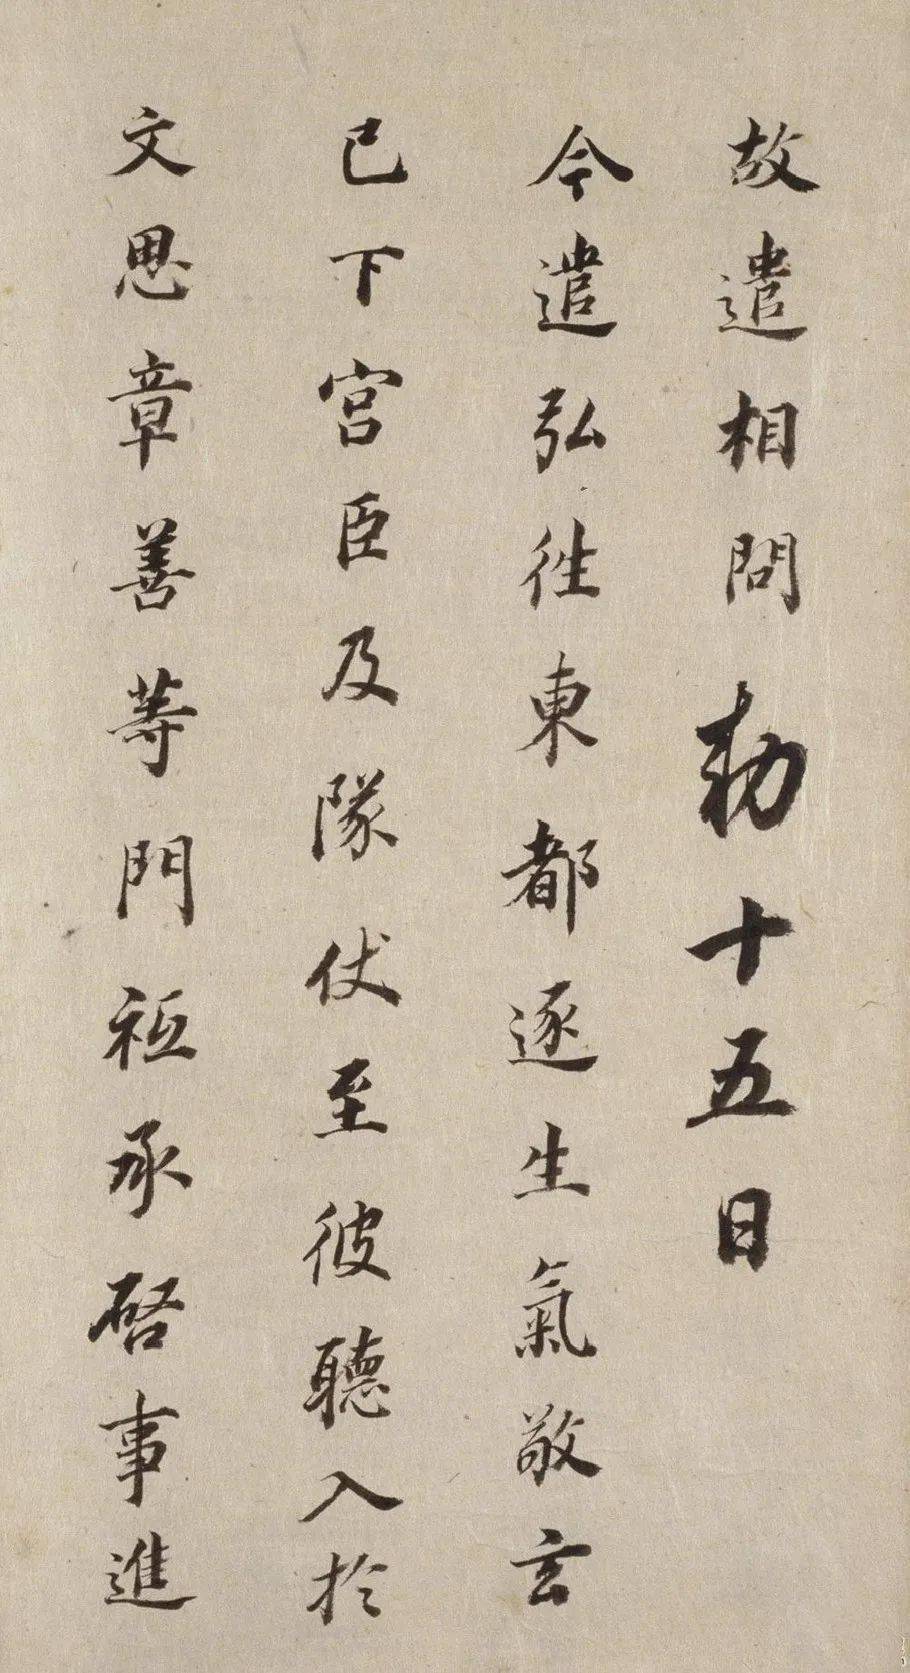 故遣相問敕十五日
今遣弘往東都逐生氣敬玄
已下宮臣及隊仗至彼聽入於
文思章善等門祗承啓事進